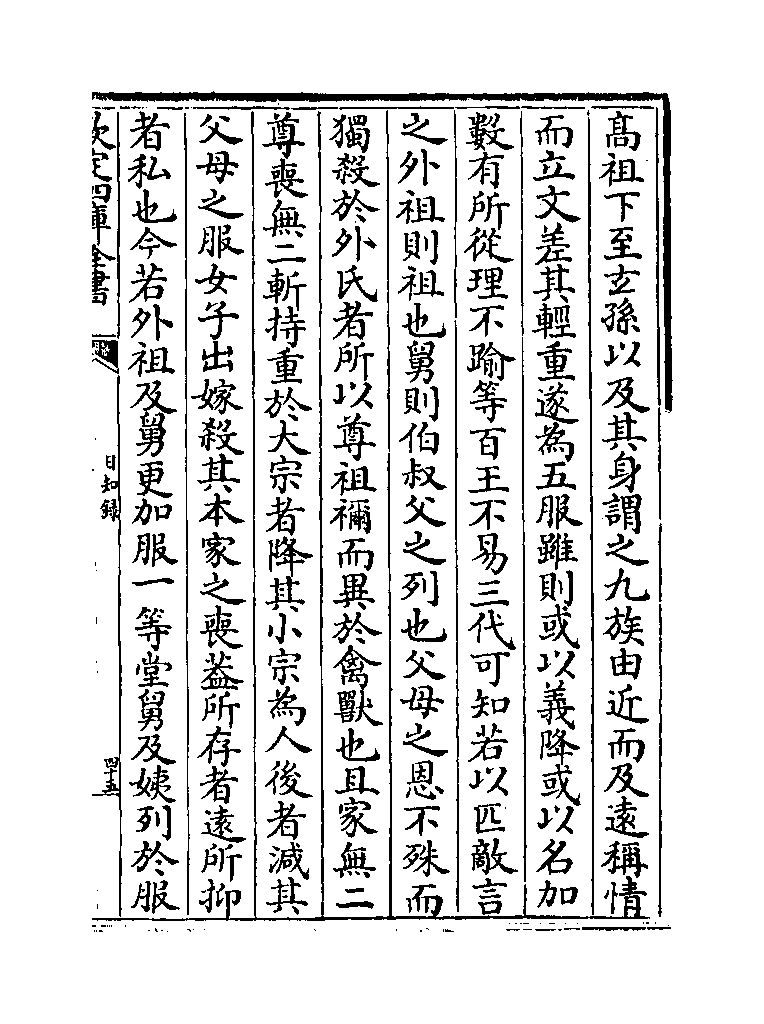 髙祖下至玄孫以及其身謂之九族由近而及逺稱情
而立文差其輕重遂為五服雖則或以義降或以名加
數有所從理不踰等百王不易三代可知若以匹敵言
之外祖則祖也舅則伯叔父之列也父母之恩不殊而
獨殺於外氏者所以尊祖禰而異於禽獸也且家無二
尊喪無二斬持重於大宗者降其小宗為人後者減其
父母之服女子出嫁殺其本家之喪葢所存者逺所抑
者私也今若外祖及舅更加服一等堂舅及姨列於服
欽定四庫全書
日知錄
四十五